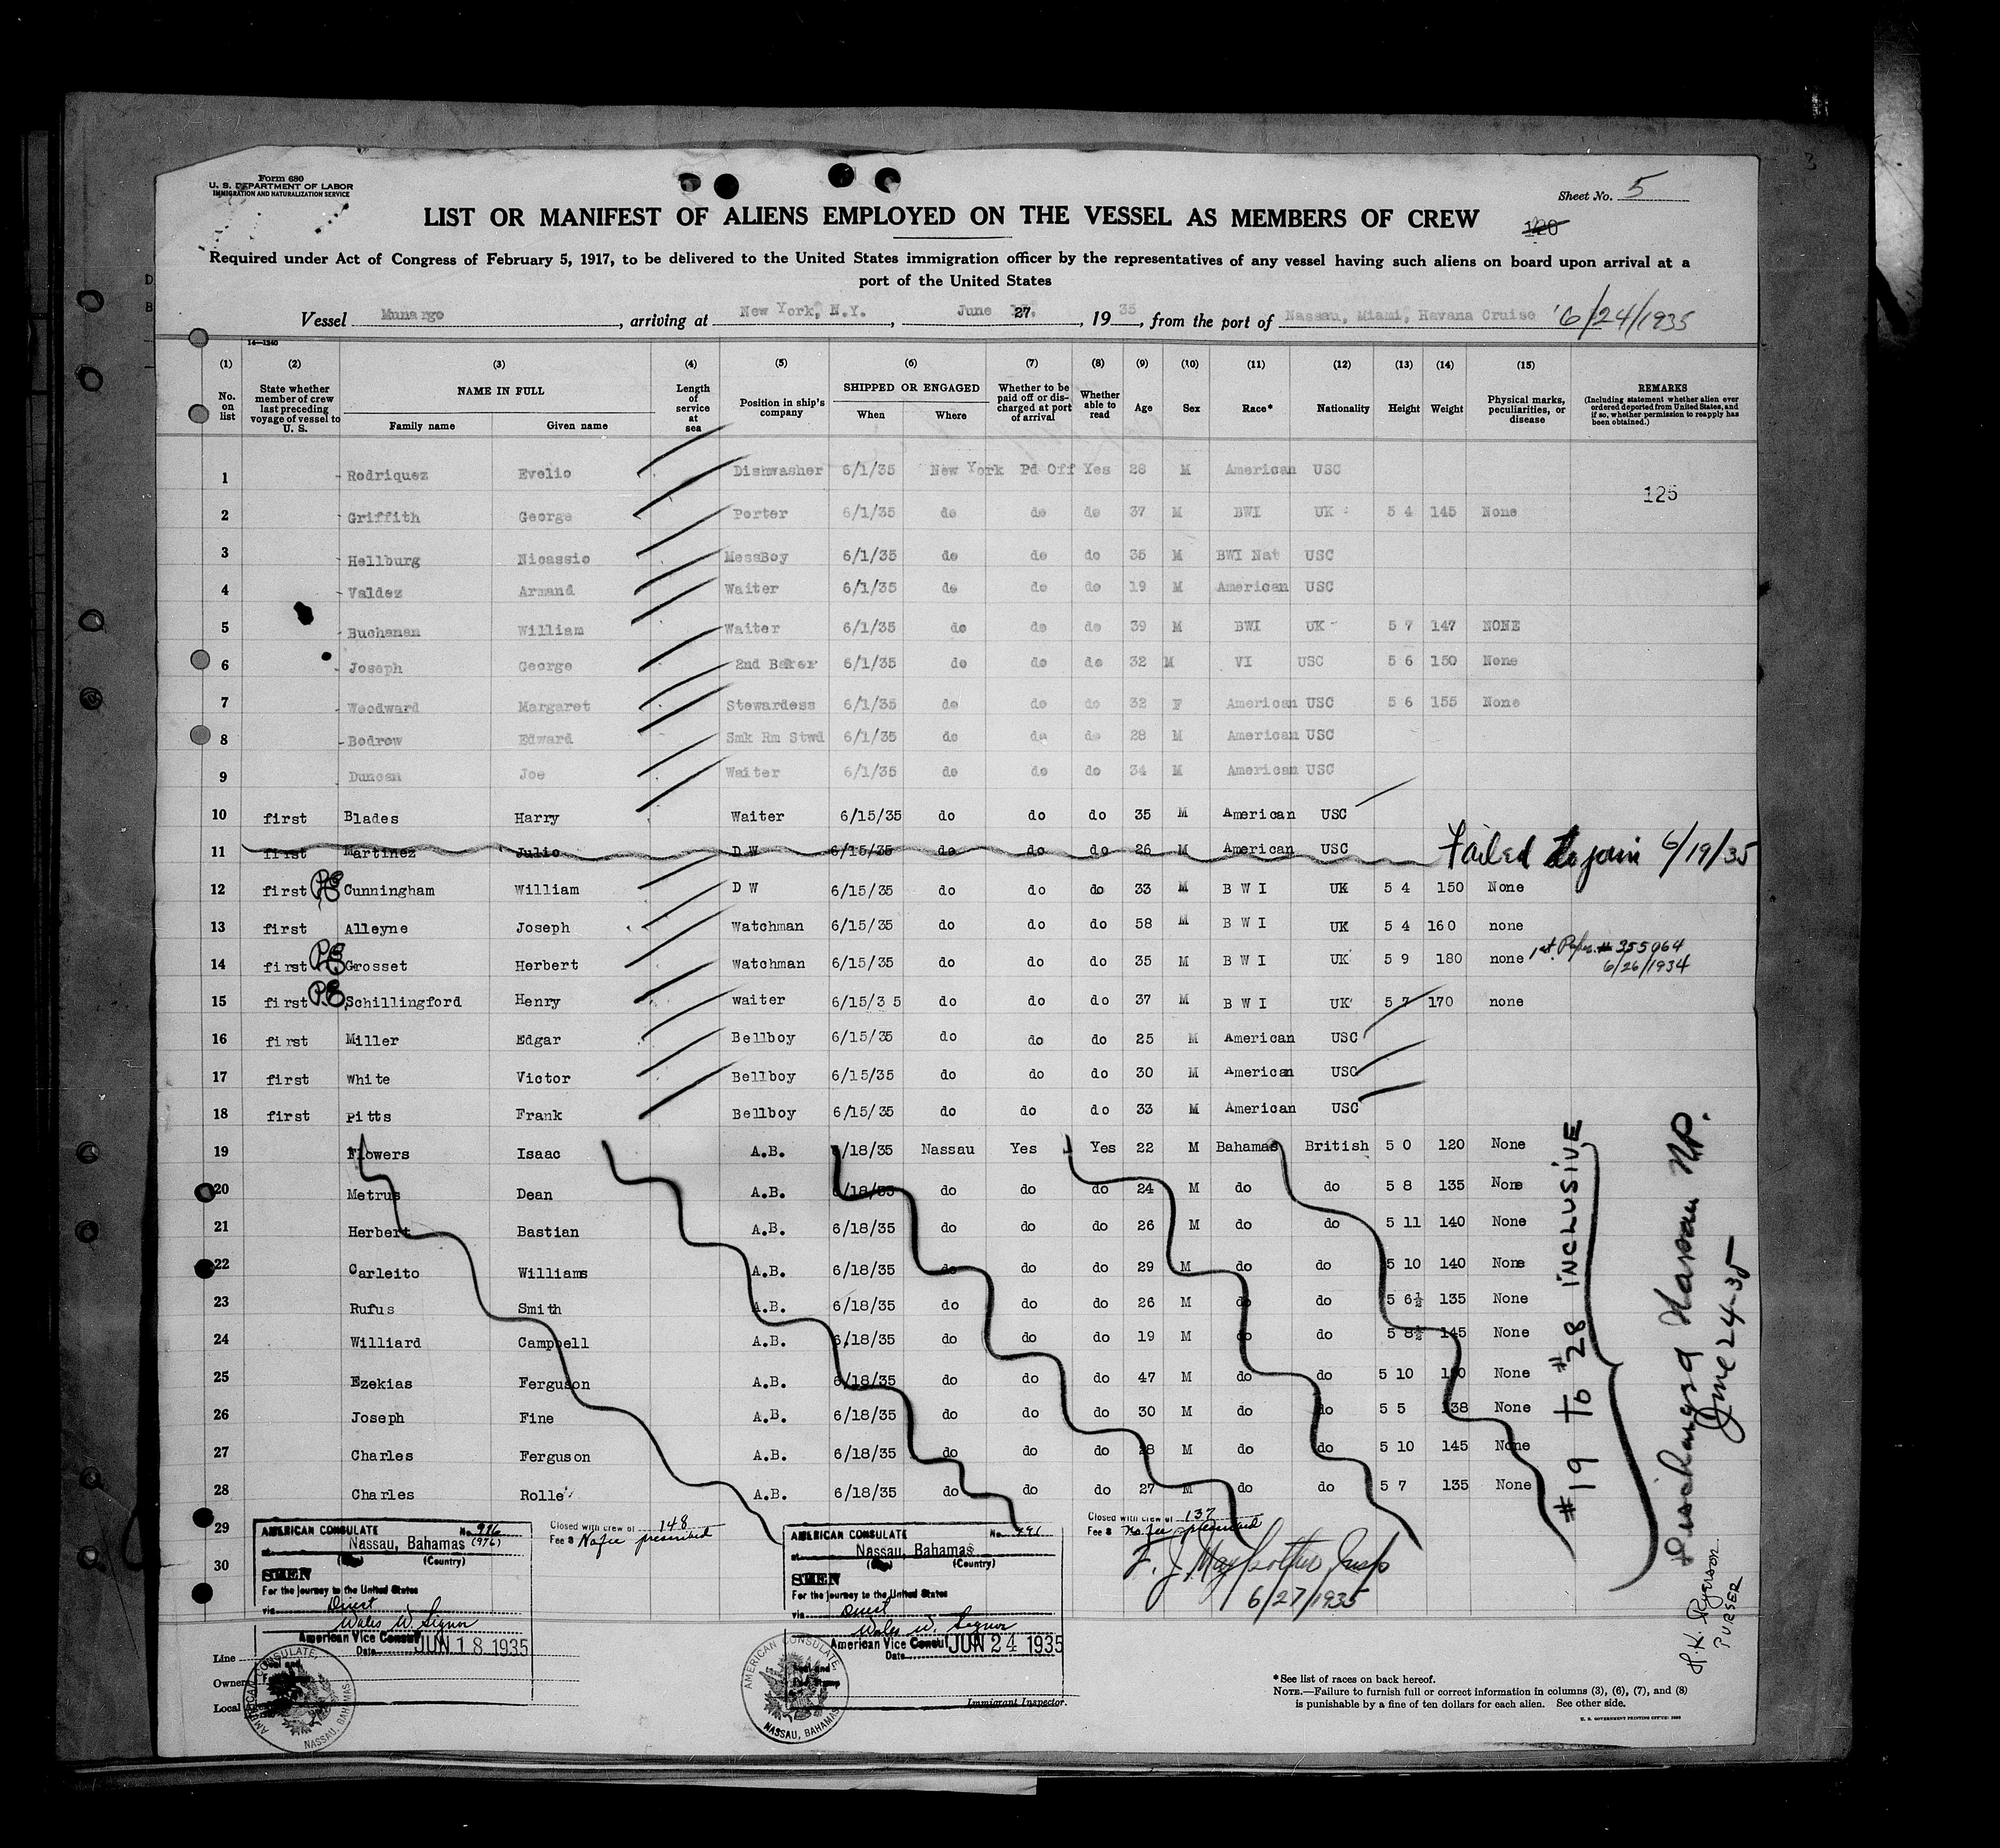 Form 680
U. S. DEPARTMENT OF LABOR
IMMIGRATION AND NATURALIZATION SERVICE
Sheet No. 5
LIST OR MANIFEST OF ALIENS EMPLOYED ON THE VESSEL AS MEMBERS OF CREW
120
Required under Act of Congress of February 5, 1917, to be delivered to the United States immigration officer by the representatives of any vessel having such aliens on board upon arrival at a
port of the United States
Vessel Munargo, arriving at New York, N.Y., June 27, 1935, from the port of Nassau, Miami, Havana Cruise 6/24/1935
14—1240
(1) (2) (3) (4) (5) (6) (7) (8) (9) (10) (11) (12) (13) (14) (15)
No. on list
State whether member of crew last preceding voyage of vessel to U. S.
NAME IN FULL
Family name Given name
Length of service at sea
Position in ship's company
SHIPPED OR ENGAGED
When Where
Whether to be paid off or discharged at port of arrival
Whether able to read
Age Sex Race* Nationality Height Weight
Physical marks, peculiarities, or disease
REMARKS
(Including statement whether alien ever ordered deported from United States, and if so, whether permission to reapply has been obtained.)
1 Rodriquez Evelio Dishwasher 6/1/35 New York Pd Off Yes 28 M American USC
125
2 Griffith George Porter 6/1/35 do do do 37 M BWI UK 5 4 145 None
3 Hellburg Nicassio MessBoy 6/1/35 do do do 35 M BWI Nat USC
4 Valdez Armand Waiter 6/1/35 do do do 19 M American USC
5 Buchanan William Waiter 6/1/35 do do do 39 M BWI UK 5 7 147 NONE
6 Joseph George 2nd Baker 6/1/35 do do do 32 M VI USC 5 6 150 None
7 Woodward Margaret Stewardess 6/1/35 do do do 32 F American USC 5 6 155 None
8 Bodrow Edward Smk Rm Stwd 6/1/35 do do do 28 M American USC
9 Duncan Joe Waiter 6/1/35 do do do 34 M American USC
10 first Blades Harry Waiter 6/15/35 do do do 35 M American USC
11 first Martinez Julio D W 6/15/35 do do do 26 M American USC Failed to join 6/19/35
12 first Cunningham William D W 6/15/35 do do do 33 M B W I UK 5 4 150 None
13 first Alleyne Joseph Watchman 6/15/35 do do do 58 M B W I UK 5 4 160 none
14 first Grosset Herbert Watchman 6/15/35 do do do 35 M B W I UK 5 9 180 none 1st. # 355964
6/26/1934
15 first Schillingford Henry waiter 6/15/3 5 do do do 37 M B W I UK 5 7 170 none
16 first Miller Edgar Bellboy 6/15/35 do do do 25 M American USC
17 first White Victor Bellboy 6/15/35 do do do 30 M American USC
18 first Pitts Frank Bellboy 6/15/35 do do do 33 M American USC
19 Flowers Isaac A.B. 6/18/35 Nassau Yes Yes 22 M Bahamas British 5 0 120 None
20 Metrus Dean A.B. 6/18/35 do do do 24 M do do 5 8 135 None
21 Herbert Bastian A.B. 6/18/35 do do do 26 M do do 5 11 140 None
22 Carleito Williams A.B. 6/18/35 do do do 29 M do do 5 10 140 None
23 Rufus Smith A.B. 6/18/35 do do do 26 M do do 5 6½ 135 None
24 Williard Campbell A.B. 6/18/35 do do do 19 M do do 5 8½ 145 None
25 Ezekias Ferguson A.B. 6/18/35 do do do 47 M do do 5 10 None
26 Joseph Fine A.B. 6/18/35 do do do 30 M do do 5 5 138 None
27 Charles Ferguson A.B. 6/18/35 do do do 28 M do do 5 10 145 None
28 Charles Rolle A.B. 6/18/35 do do do 27 M do do 5 7 135 None
#19 To #28 INCLUSIVE
Discharged Nassau N.P.
June 24-35
H. K. Ryerson
PURSER
29
30
AMERICAN CONSULATE No. 976 (976)
at Nassau, Bahamas
(Country)
SEEN
For the journey to the United States
via Direct
Wales W. Signor
American Vice Consul
Date JUN 18 1935
Closed with crew of 148
Fee $ No fee prescribed
AMERICAN CONSULATE No. 991
at Nassau, Bahamas
(Country)
SEEN
For the journey to the United States
via Direct
Wales W. Signor
American Vice Consul
Date JUN 24 1935
Closed with crew of 137
Fee $ No fee prescribed
6/27/1935
Line
Owner
Local
AMERICAN CONSULATE,
NASSAU, BAHAMAS
AMERICAN CONSULATE,
NASSAU, BAHAMAS
Immigrant Inspector.
*See list of races on back hereof.
NOTE.—Failure to furnish full or correct information in columns (3), (6), (7), and (8)
is punishable by a fine of ten dollars for each alien. See other side.